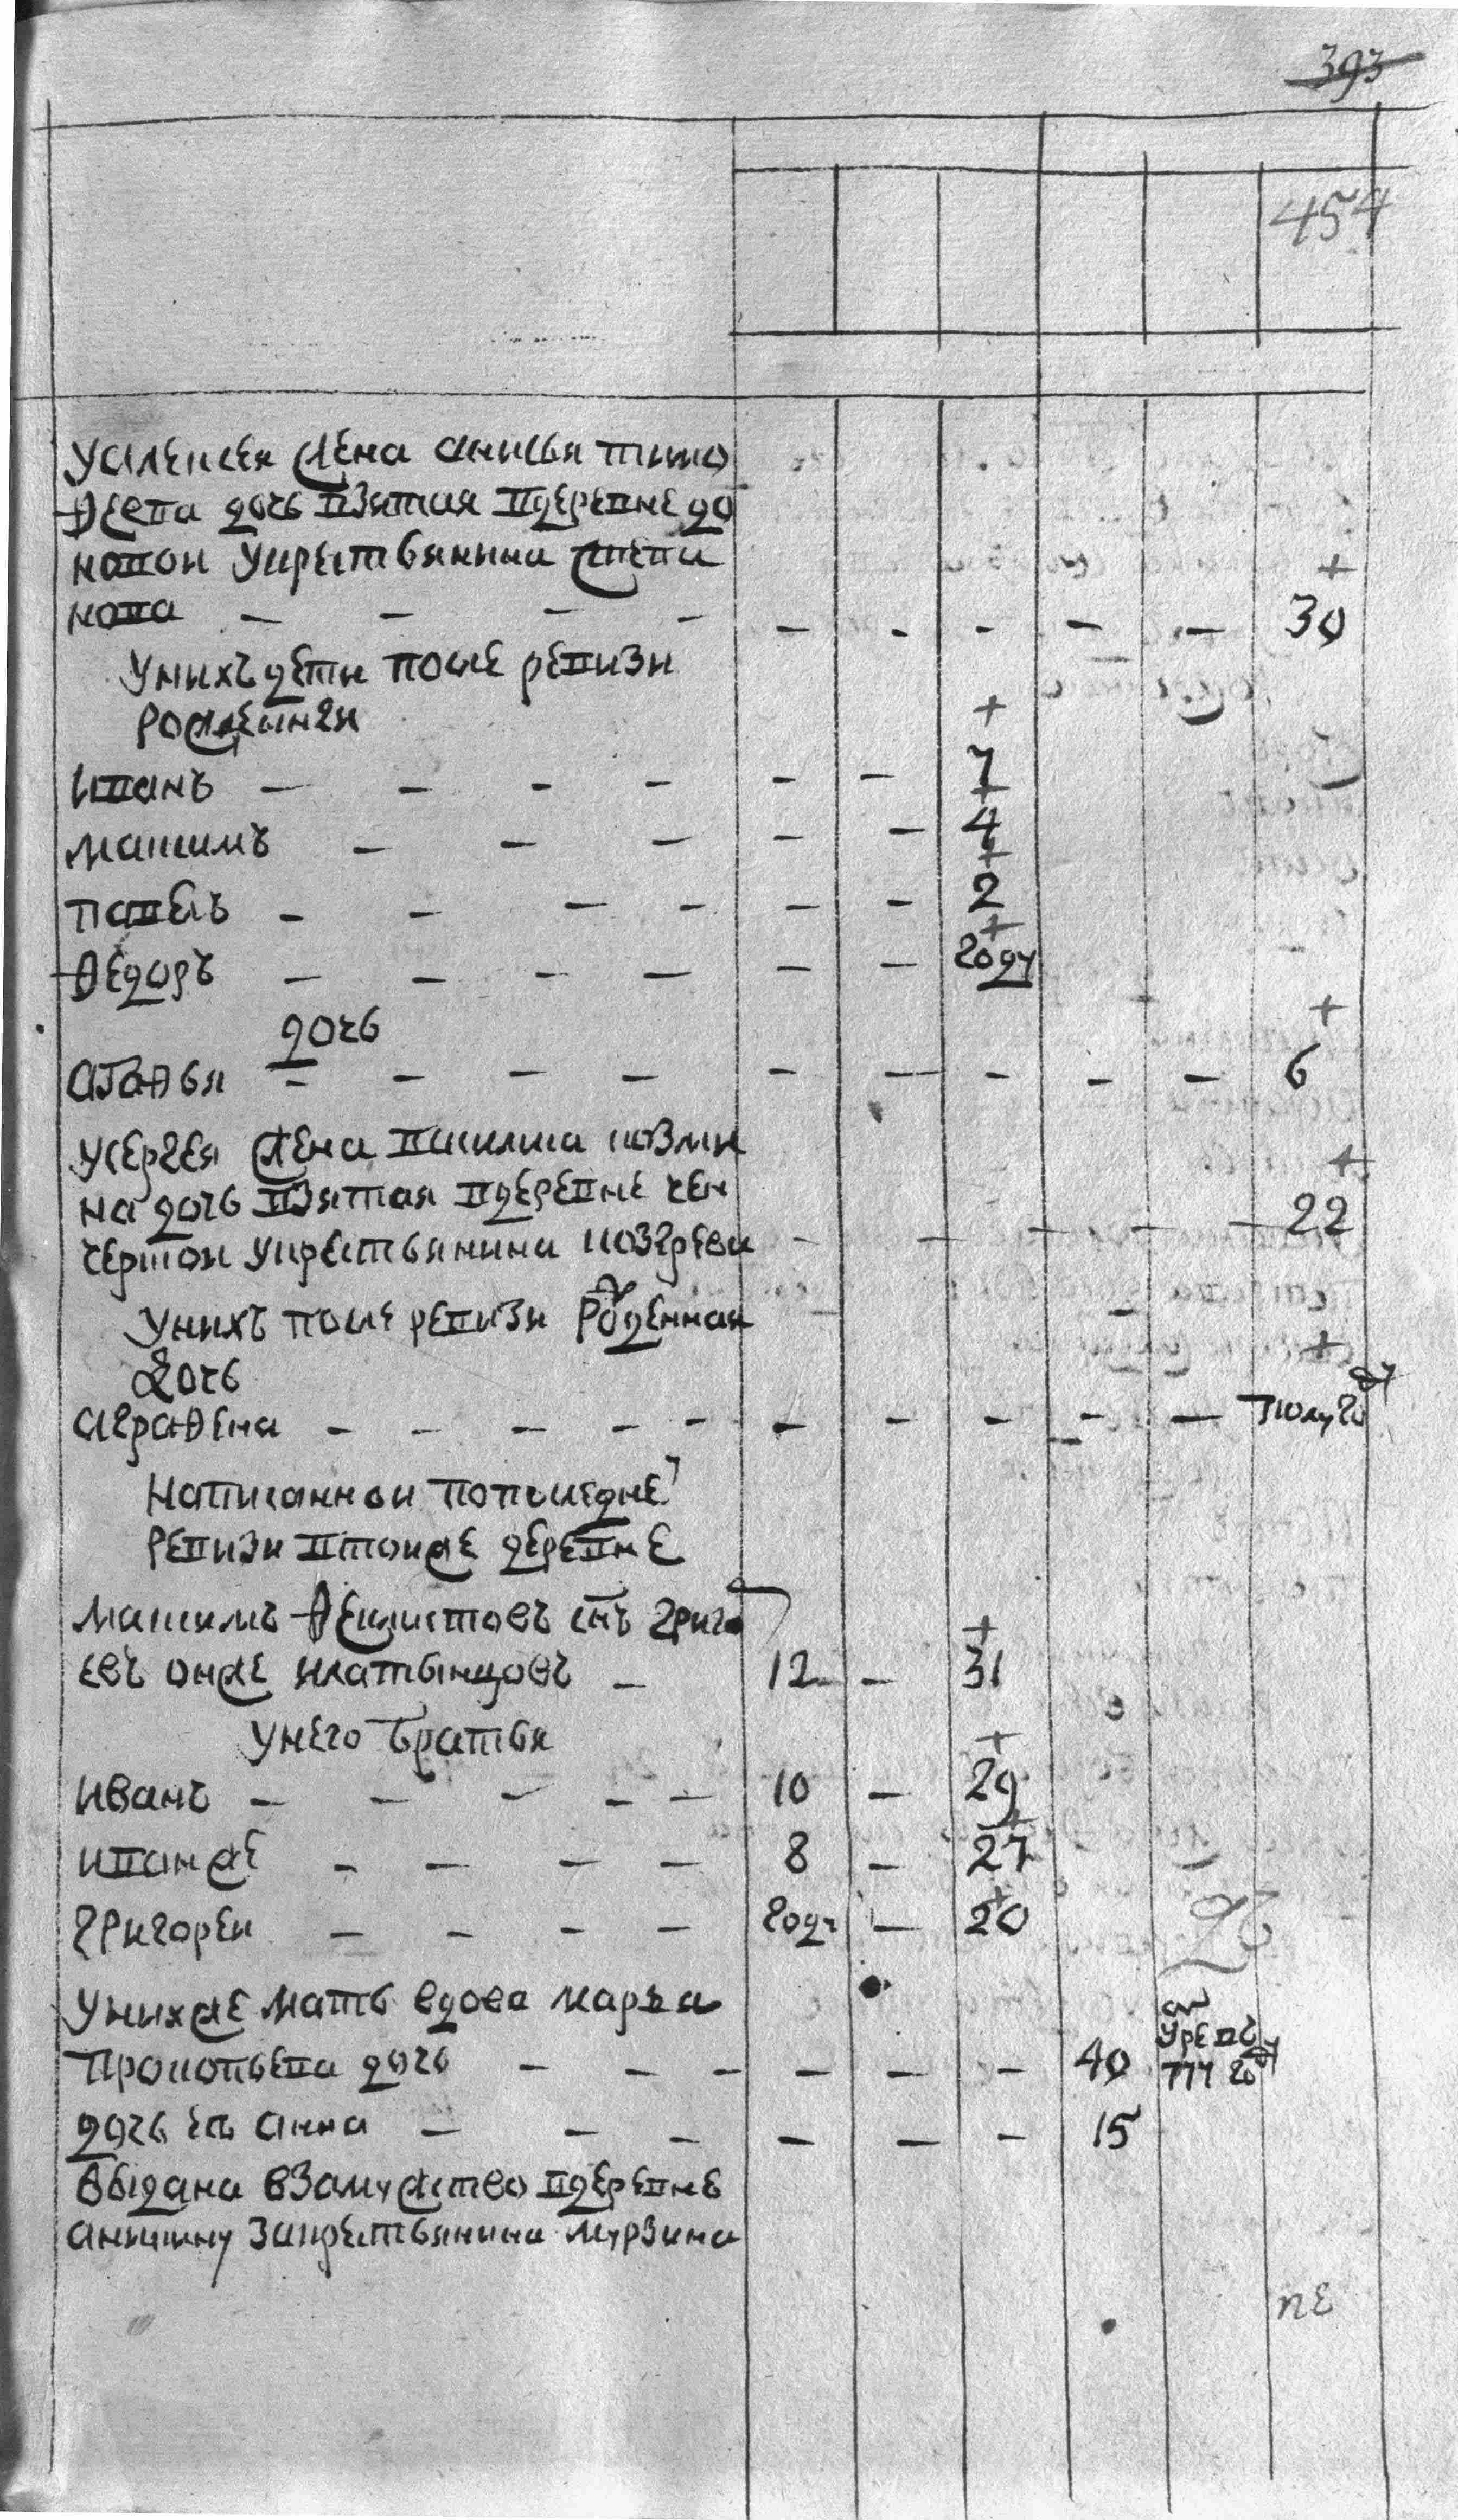 393
454
У Алексея жена Анисья Тимо
ѳеева дочь взятая в деревне До
новои у крестьянина Степа
нова — — — — — — — — — 30
У них детеи после ревизи
рожденыя
Иванъ — — — — — — 7
Максимъ — — — — — 4
Павелъ — — — — — — 2
Ѳедоръ — — — — — — году
дочь
Агаѳья — — — — — — — — — 6
У Сергея жена Василиса Козми
на дочь взятая в деревне Чен
чертои у крестьянина Козгрева — — — — — 22
У нихъ после ревизи роженная
дочь
Аграѳена — — — — — — — — — — полугоду
Написаннои по последне
ревизи в тоиже деревне
Максимъ Ѳелистовъ снъ Григо
евъ онже Клатынцовъ — 12 — 31
У него братья
Иванъ — — — — — 10 — 29
Иванже — — — — 8 — 27
Григореи — — — — году — 20
У нихже мать вдова Марья
Прокопьева дочь — — — — — — 40 умре въ 777 году
дочь ея Анна — — — — — — 15
выдана в замужство в деревне
Аникину за крестьянина Мурзина
не